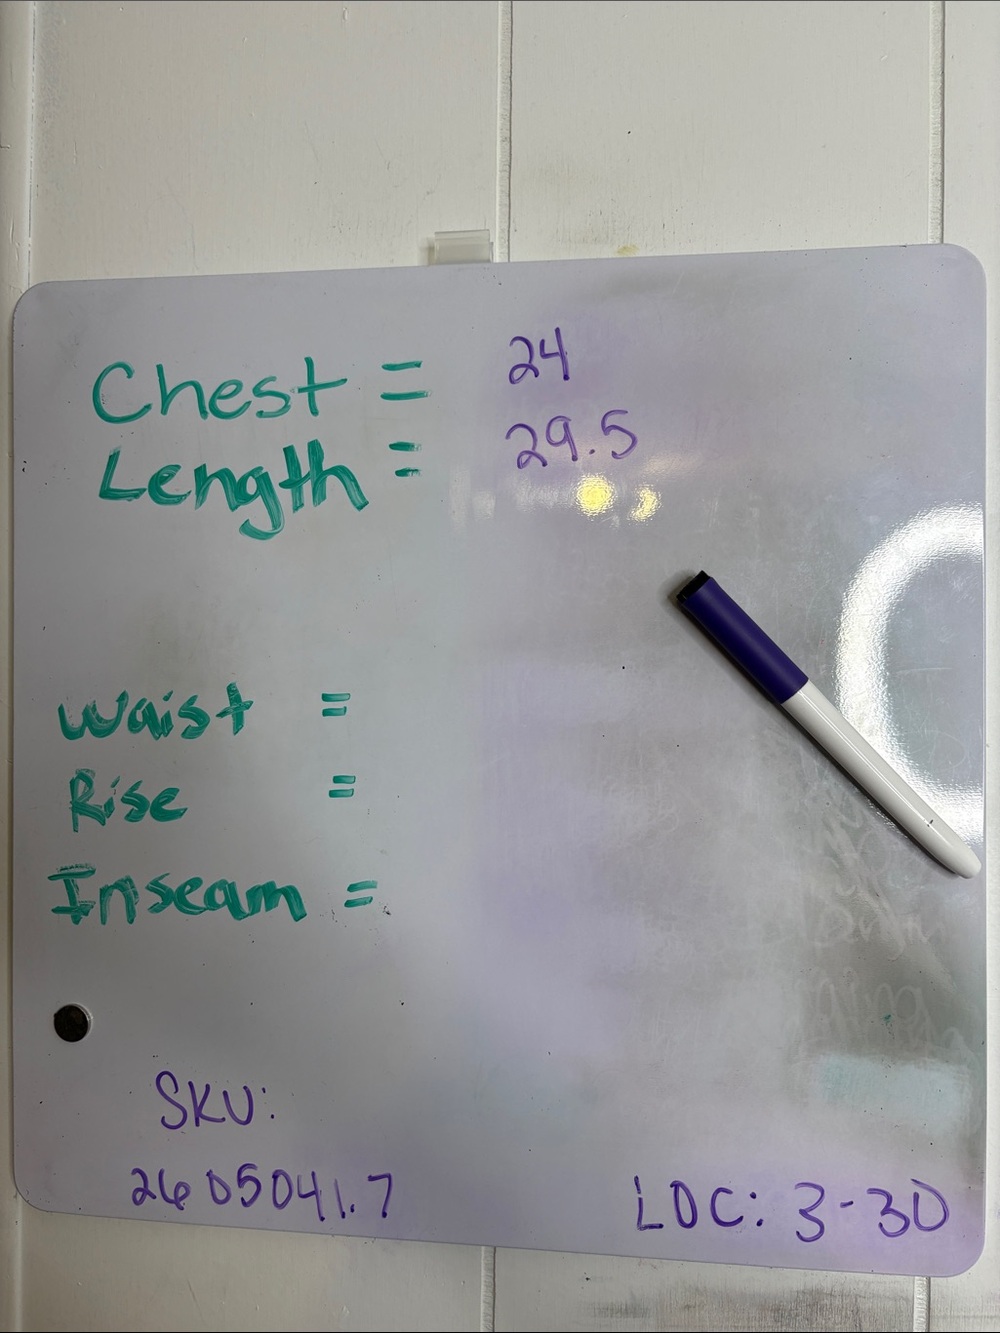 Chest = 24
Length = 29.5
Waist =
Rise =
Inseam =
SKU:
2605041.7
LOC: 3-30